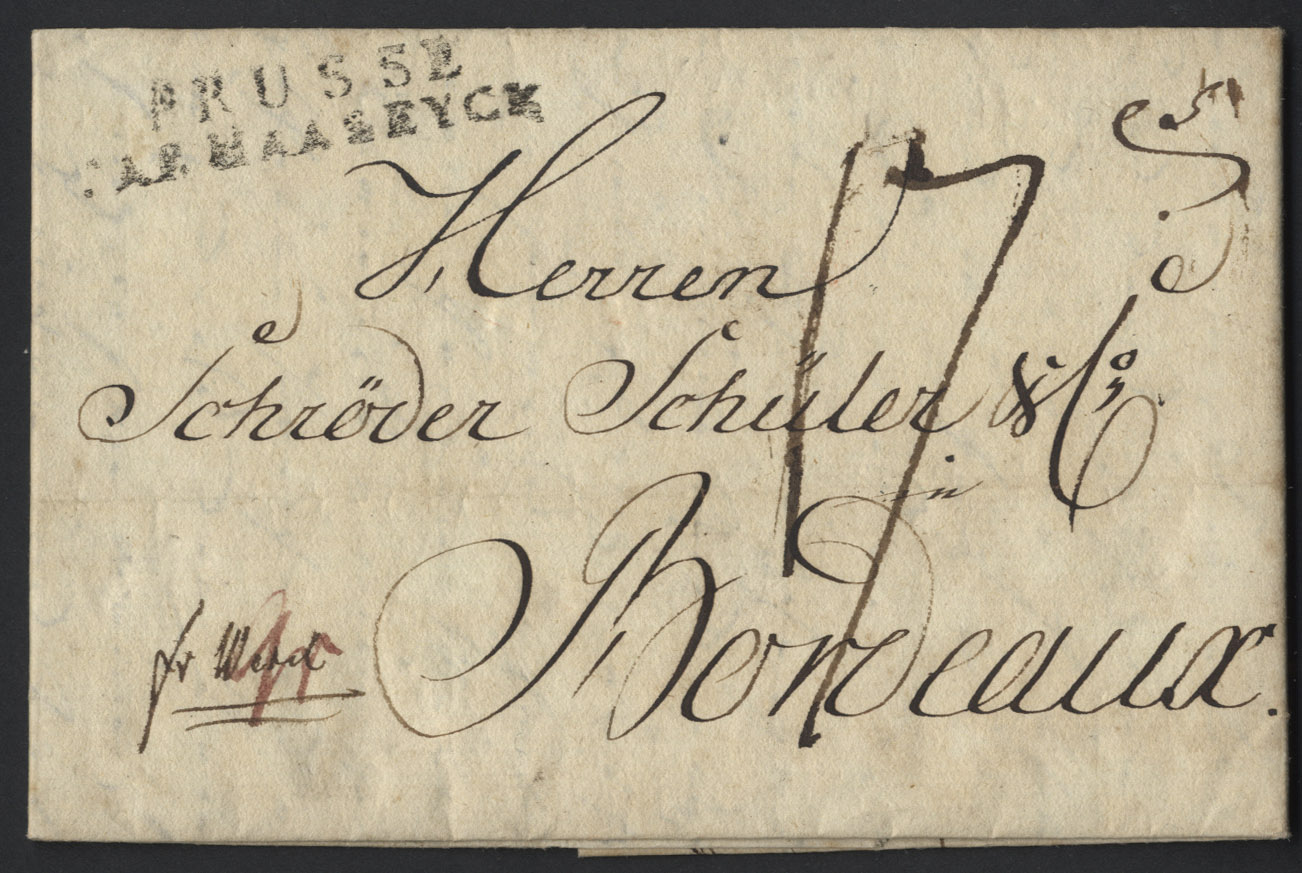 PRUSSE
PAR MAASEYCK
17
Herren
Schröder Schüler & Co,
in
Bordeaux.
fr Wesel